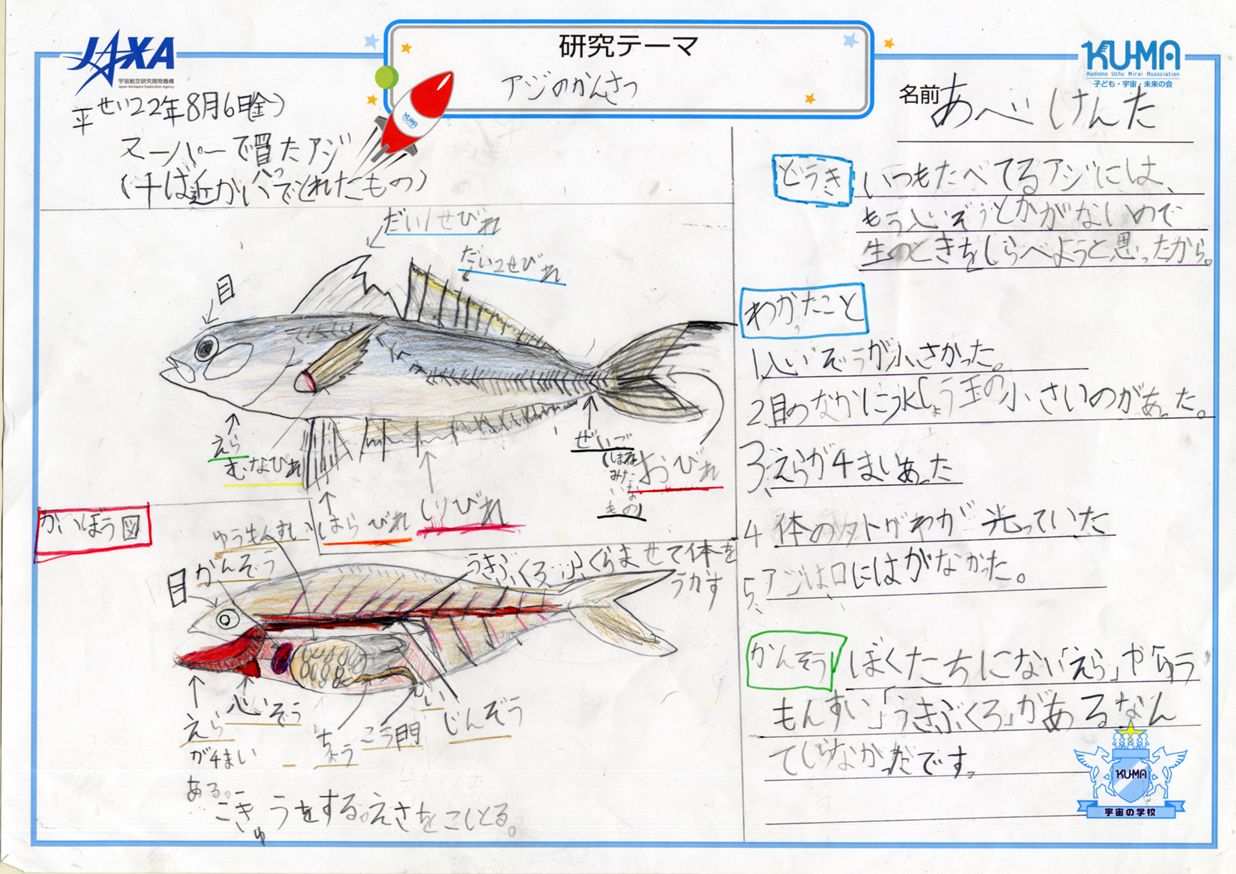 JAXA
宇宙航空研究開発機構
Japan Aerospace Exploration Agency
研究テーマ
アジのかんさつ
KUMA
KUMA
Kodomo Uchu Mirai Association
子ども・宇宙・未来の会
名前 あべ けんた
平せい22年8月6日(金)
スーパーで買ったアジ
(千ば近かいでとれたもの)
だい1せびれ
だい2せびれ
目
えら
むなびれ
はらびれ
しりびれ
ぜいご
おびれ
かいぼう図
ゆうもんすい
かんぞう
目
うきぶくろ…ふくらませて体を
うかす
えら
が4まい
ある。
こきゅうをする。えさをこしとる。
心ぞう
ちょう
こう門
い
じんぞう
どうき いつもたべてるアジには、
もうしんぞうとかがないので
生のときをしらべようと思ったから。
わかったこと
1、しんぞうが小さかった。
2 目のなかにすいしょう玉の小さいのがあった。
3、えらが4まいあった
4 体の外がわが光っていた
5、アジは口にはがなかった。
かんそう ぼくたちにない「えら」や「ゆう
もんすい」「うきぶくろ」があるなん
てしらなかったです。
KUMA
宇宙の学校